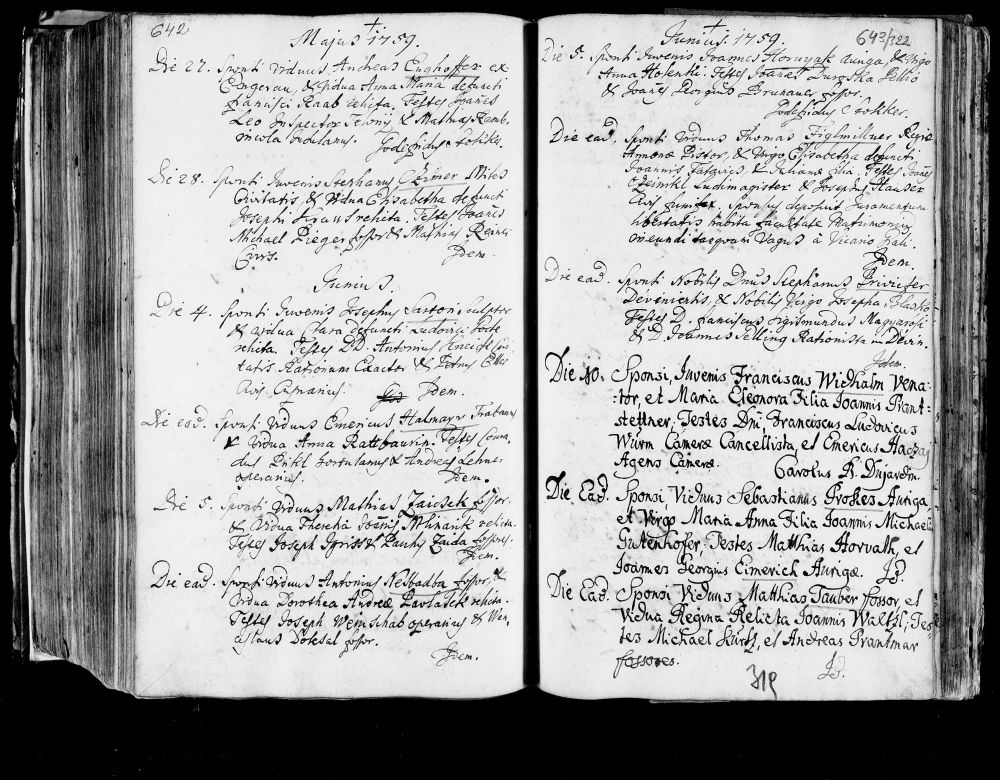 642
Majus 1759.
Die 27. Sponsi Viduus Andreas Enghoffer ex
Engerau, & Vidua Anna Maria defuncti
Francisci Raab relicta, Testes Joanes
Leo Inspector & Mathias
incola hortulanus. Godefridus Fokker.
Die 28. Sponsi Juvenis Stephanus Miles
Civitatis & Vidua Elisabetha defuncti
Josephi Kraus relicta. Testes Joanes
Michael Rieger fossor & Mathias Reiner
Civis. Idem.
Junius.
Die 4. Sponsi Juvenis Josephus Sartori sculptor
& vidua Clara defuncti Ludovici
relicta. Testes DD. Antonius
tatis Rationum Exactor & Petrus
Civis Idem.
Die ead. Sponsi viduus Emericus Halmayr Trabanus
& vidua Anna Rattbaurin. Testes Conra,
dus Pikl hortulanus & Andreas Lehner
operarius. Idem.
Die 5. Sponsi Viduus Mathias Zaischek fossor.
& Vidua Theresia Joanis Mlinarik relicta.
Testes Joseph & Paulus Zaida fossores.
Idem.
Die ead. Sponsi viduus Antonius Nesbadba fossor, &
Vidua Dorothea Andreæ Pavlatsek relicta.
Testes Joseph Weinschab operarius & Wen,
ceslaus Dolesal fossor.
Idem.
Junius 1759.
643/322
Die 5. Sponsi Juvenis Joannes Hornyak auriga, & Virgo
Anna Testes Joanes
& Joanes Georgius Brunauer fossor.
Godefridus Fokker.
Die ead. Sponsi Viduus Thomas Figlmillner Regiæ
Annonæ Pistor, & Virgo Elisabetha defuncti
Joannis & Julianæ filia. Testes Joanes
Ludimagister & Josephus Hauser
Civis Sponsus deposuit Juramentum
libertatis habita facultate Matrimonium
ineundi tanquam Vagus à Vicario
Idem.
Die ead. Sponsi Nobilis Dnus Stephanus Privizer
Deviniensis, & Nobilis Virgo Josepha Blasko
Testes D. Franciscus Sigismundus Magyarosi
& D. Joannes Rationista in Devin.
Idem.
Die 10. Sponsi, Juvenis Franciscus Widhalm Vena-
tor, et Maria Eleonora Filia Ioannis Prant-
stettner. Testes Dni, Franciscus Ludovicus
Wurm Cameræ Cancellista, et Emericus
Agens Cameræ. Carolus R. Dujardin.
Die Ead. Sponsi Viduus Sebastianus Proskes Auriga,
et Virgo Maria Anna Filia Ioannis Michaelis
Gutenhofer. Testes Matthias Horvath, et
Ioannes Georgius Eimerich Aurigæ. Id.
Die Ead. Sponsi Viduus Matthias Tauber fossor et
Vidua Regina Relicta Ioannis Waltzl, Tes-
tes Michael Kurtz, et Andreas Prantmar
fossores. Id.
319